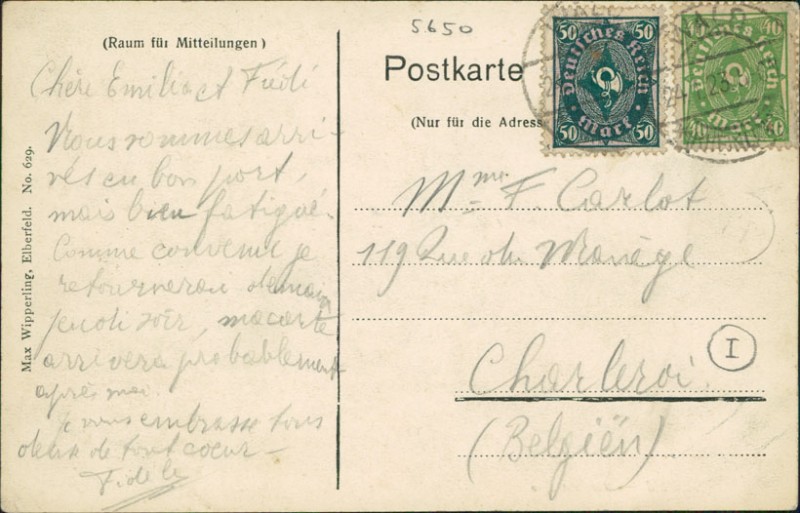 5650
(Raum für Mitteilungen)
Postkarte
(Nur für die Adress
Max Wipperling, Elberfeld. No. 629.
50 50
Deutsches Reich
50 Mark 50
40 40
Deutsches Reich
40 Mark 40
23
Chère Emilia et Fiédi
Nous sommes arri-
vés en bon port,
mais bien fatigué.
Comme convenu je
retournerau demain
jeudi soir, ma carte
arrivera probablement
après moi.
je vous embrasse tous
deux de tout coeur –
Fidele
Mme F. Carlot
119 Rue du Manège
I
Charleroi.
(Belgiën)